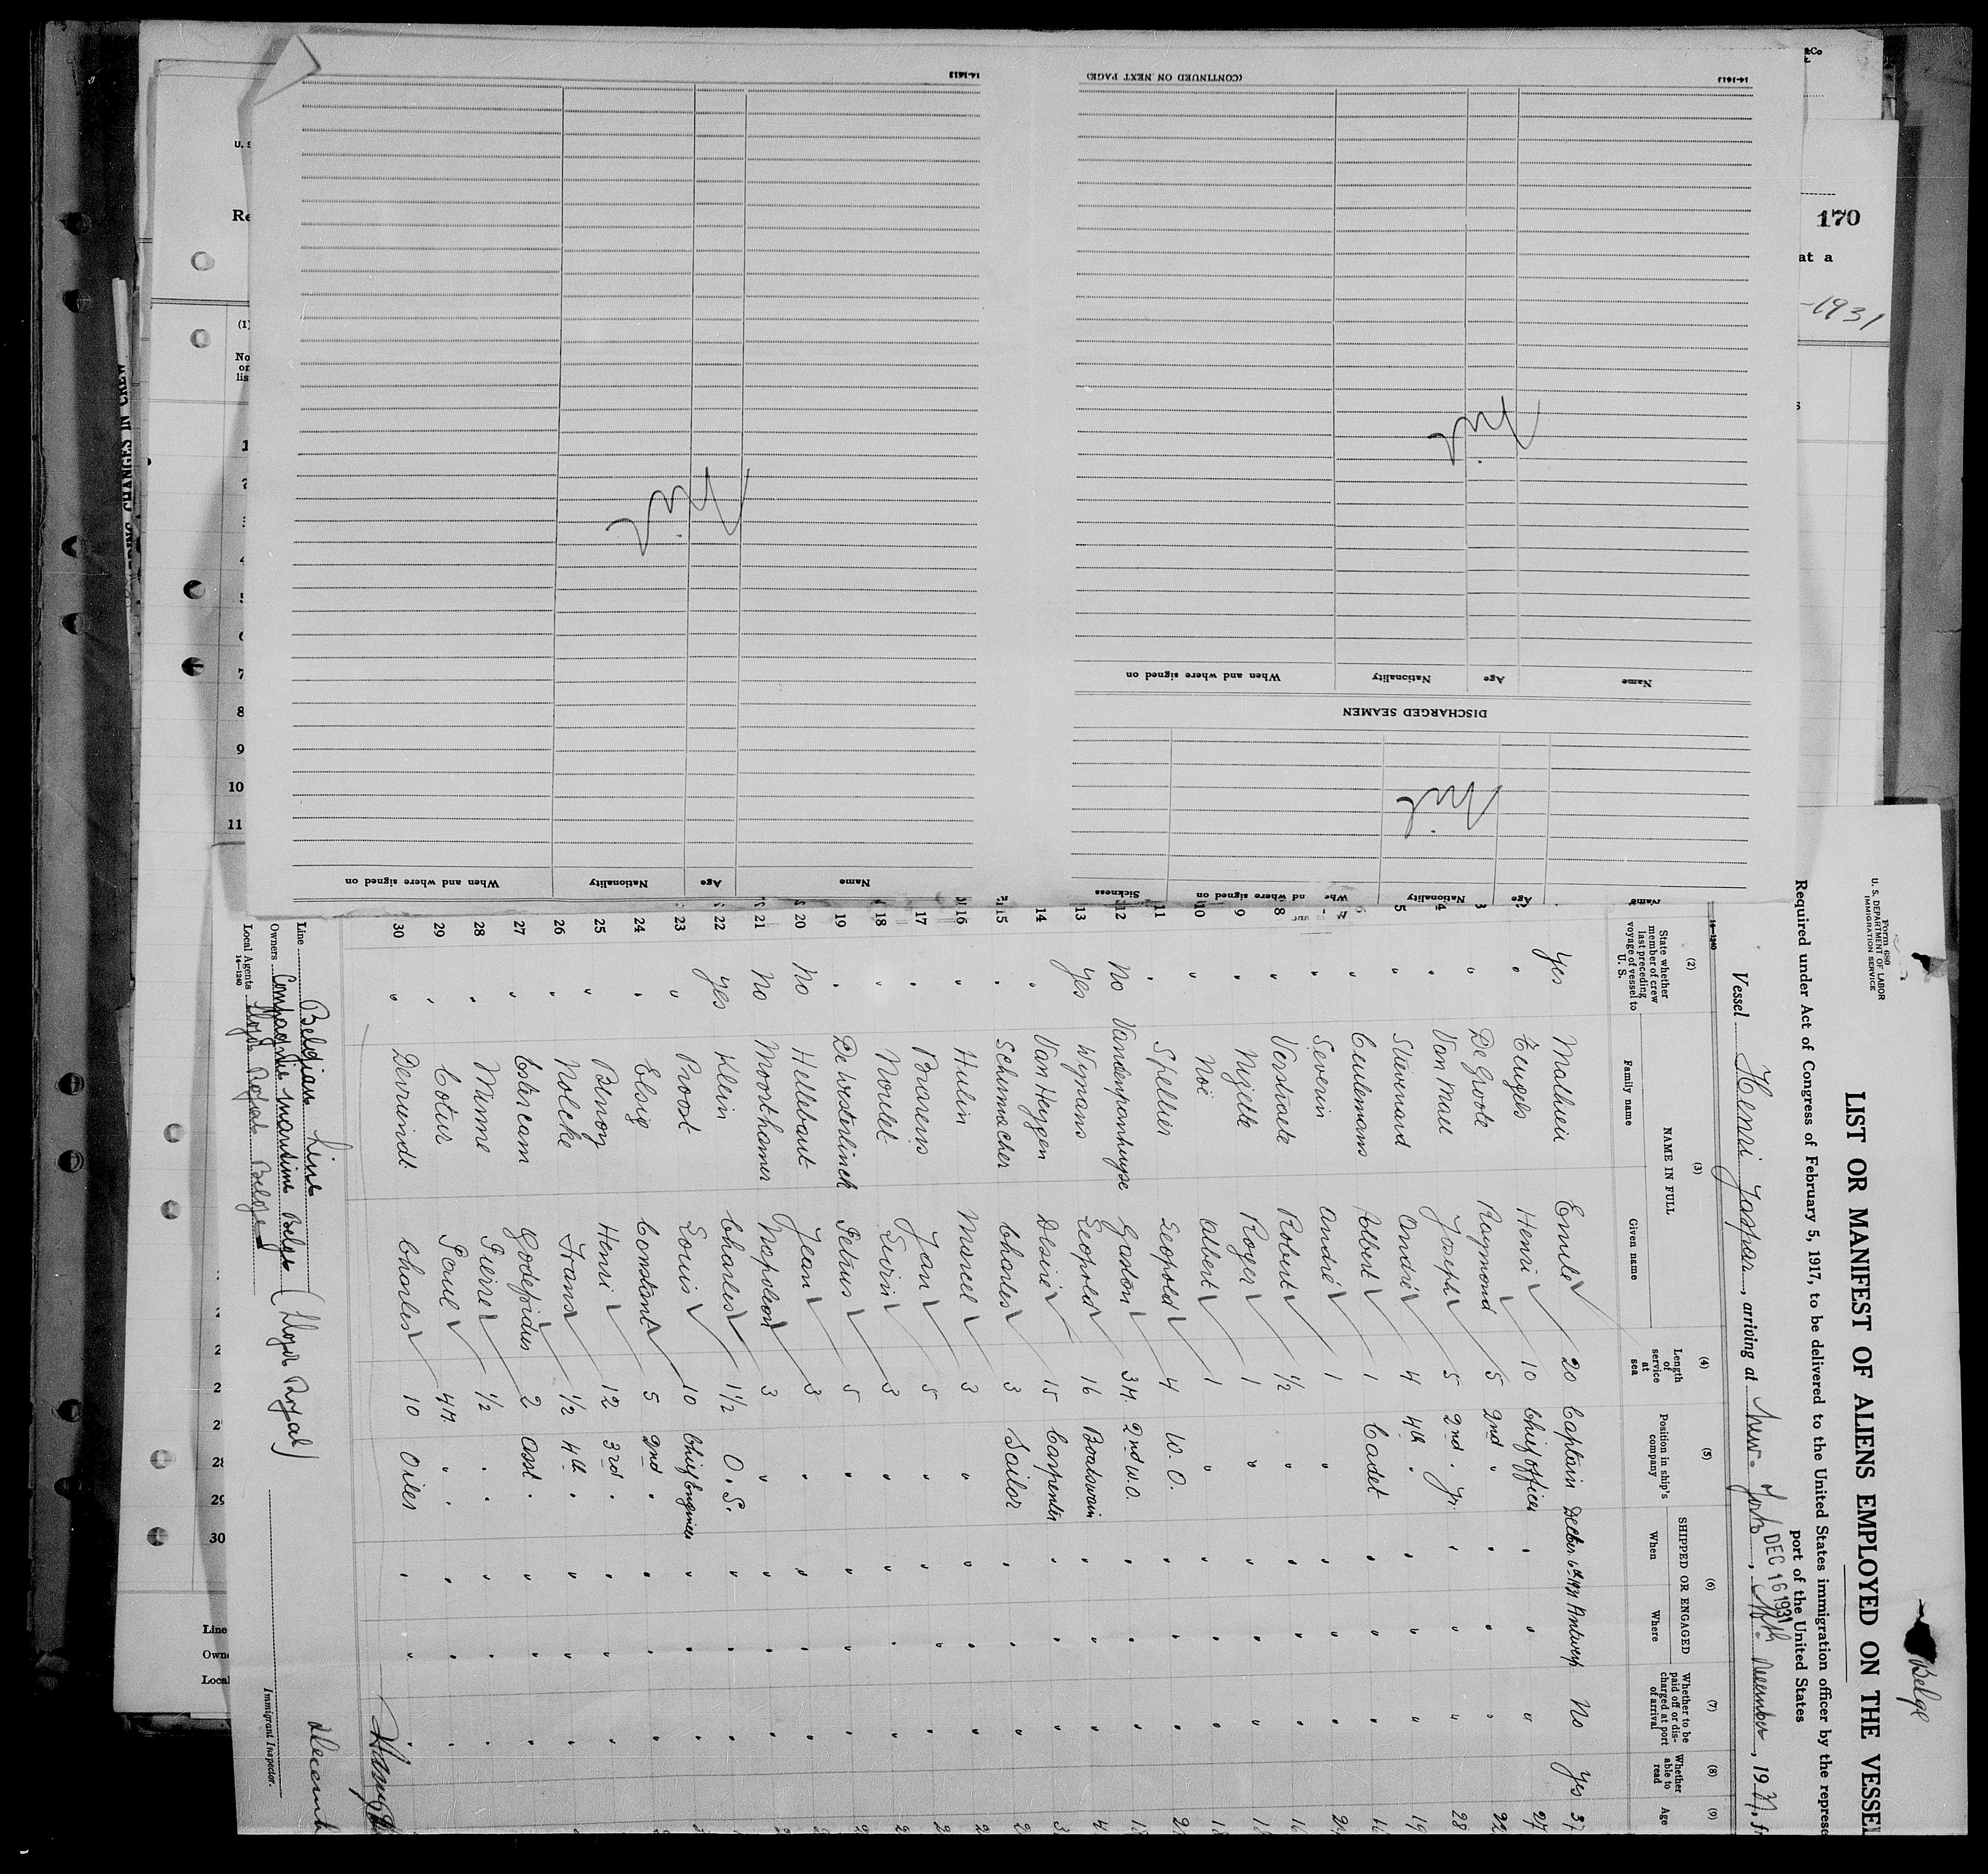 &Co
170
at a
-1931
U. S
Re
(1)
No
on
lis
1
8
9
10
11
28
29
30
Line
Owne
Local
14-1613
(CONTINUED ON NEXT PAGE)
14-1613
Nil
Nil
When and where signed on
Nationality
Age
Name
DISCHARGED SEAMEN
Nil
Name
Age
Nationality
When and where signed on
Sickness
Name
Age
Nationality
When and where signed on
Belge
Form 680
U. S. DEPARTMENT OF LABOR
IMMIGRATION SERVICE
LIST OR MANIFEST OF ALIENS EMPLOYED ON THE VESSEL
Required under Act of Congress of February 5, 1917, to be delivered to the United States immigration officer by the represe
port of the United States
Vessel Henri Jaspar, arriving at New-York, DEC 16 1931 December, 1931, fr
14-1240
(2) (3) (4) (5) (6) (7) (8) (9)
State whether member of crew last preceding voyage of vessel to U. S.
NAME IN FULL
Family name
Given name
Length of service at sea
Position in ship's company
SHIPPED OR ENGAGED
When
Where
Whether to be paid off or discharged at port of arrival
Whether able to read
Age
Yes Mathieu Emile 20 Captain Decber 6th 1931 Antwerp No Yes 37
" Eugels Henri 10 Chief officer " " " 27
" De Groote Raymond 5 2nd " " " " 22
4 " Van Mael Joseph 5 2nd " Jr. " " " 28
5 " Stievenard André 4 4th " " " " 19
" Ceulemans Albert 1 Cadet " " "
" Severin André 1 " " " "
8 " Verstraete Robert 1/2 " " " "
9 " Nizette Roger 1 " " " "
10 " Noë Albert 1 " " " "
11 " Spellier Leopold 4 W. O. " " "
12 No Vandenpanhuyse Gaston 3M. 2nd W.O. " " "
13 Yes Wynans Leopold 16 Boatswain " " "
14 " Van Heygen Désiré 15 Carpenter " " "
15 " Schumacher Charles 3 Sailor " " "
16 " Hulin Marcel 3 " " " "
17 " Buarens Jan 5 " " " "
18 " Noulet Livin 3 " " " "
19 " De Westerlinck Petrus 5 " " " "
20 No Hellebaut Jean 3 " " " "
21 No Moorthamer Napoleon 3 " " " "
22 Yes Klein Charles 1 1/2 O. S. " " "
23 " Proost Louis 10 Chief Engineer " " "
24 " Elsig Constant 5 2nd " " " "
25 " Benoy Henri 12 3rd " " " "
26 " Nolcke Frans 1/2 4th " " " "
27 " Estercam Godefridus 2 Asst " " " "
28 " Minne Pierre 1/2 " " " " "
29 " Cotur Paul 4M. " " " " "
30 " Devriendt Charles 10 Oiler " " "
Line Belgian Line
Owners Compagnie Maritime Belge (Lloyd Royal)
Local Agents Lloyd Royal Belge
14-1240
Decemb
Immigrant Inspector.